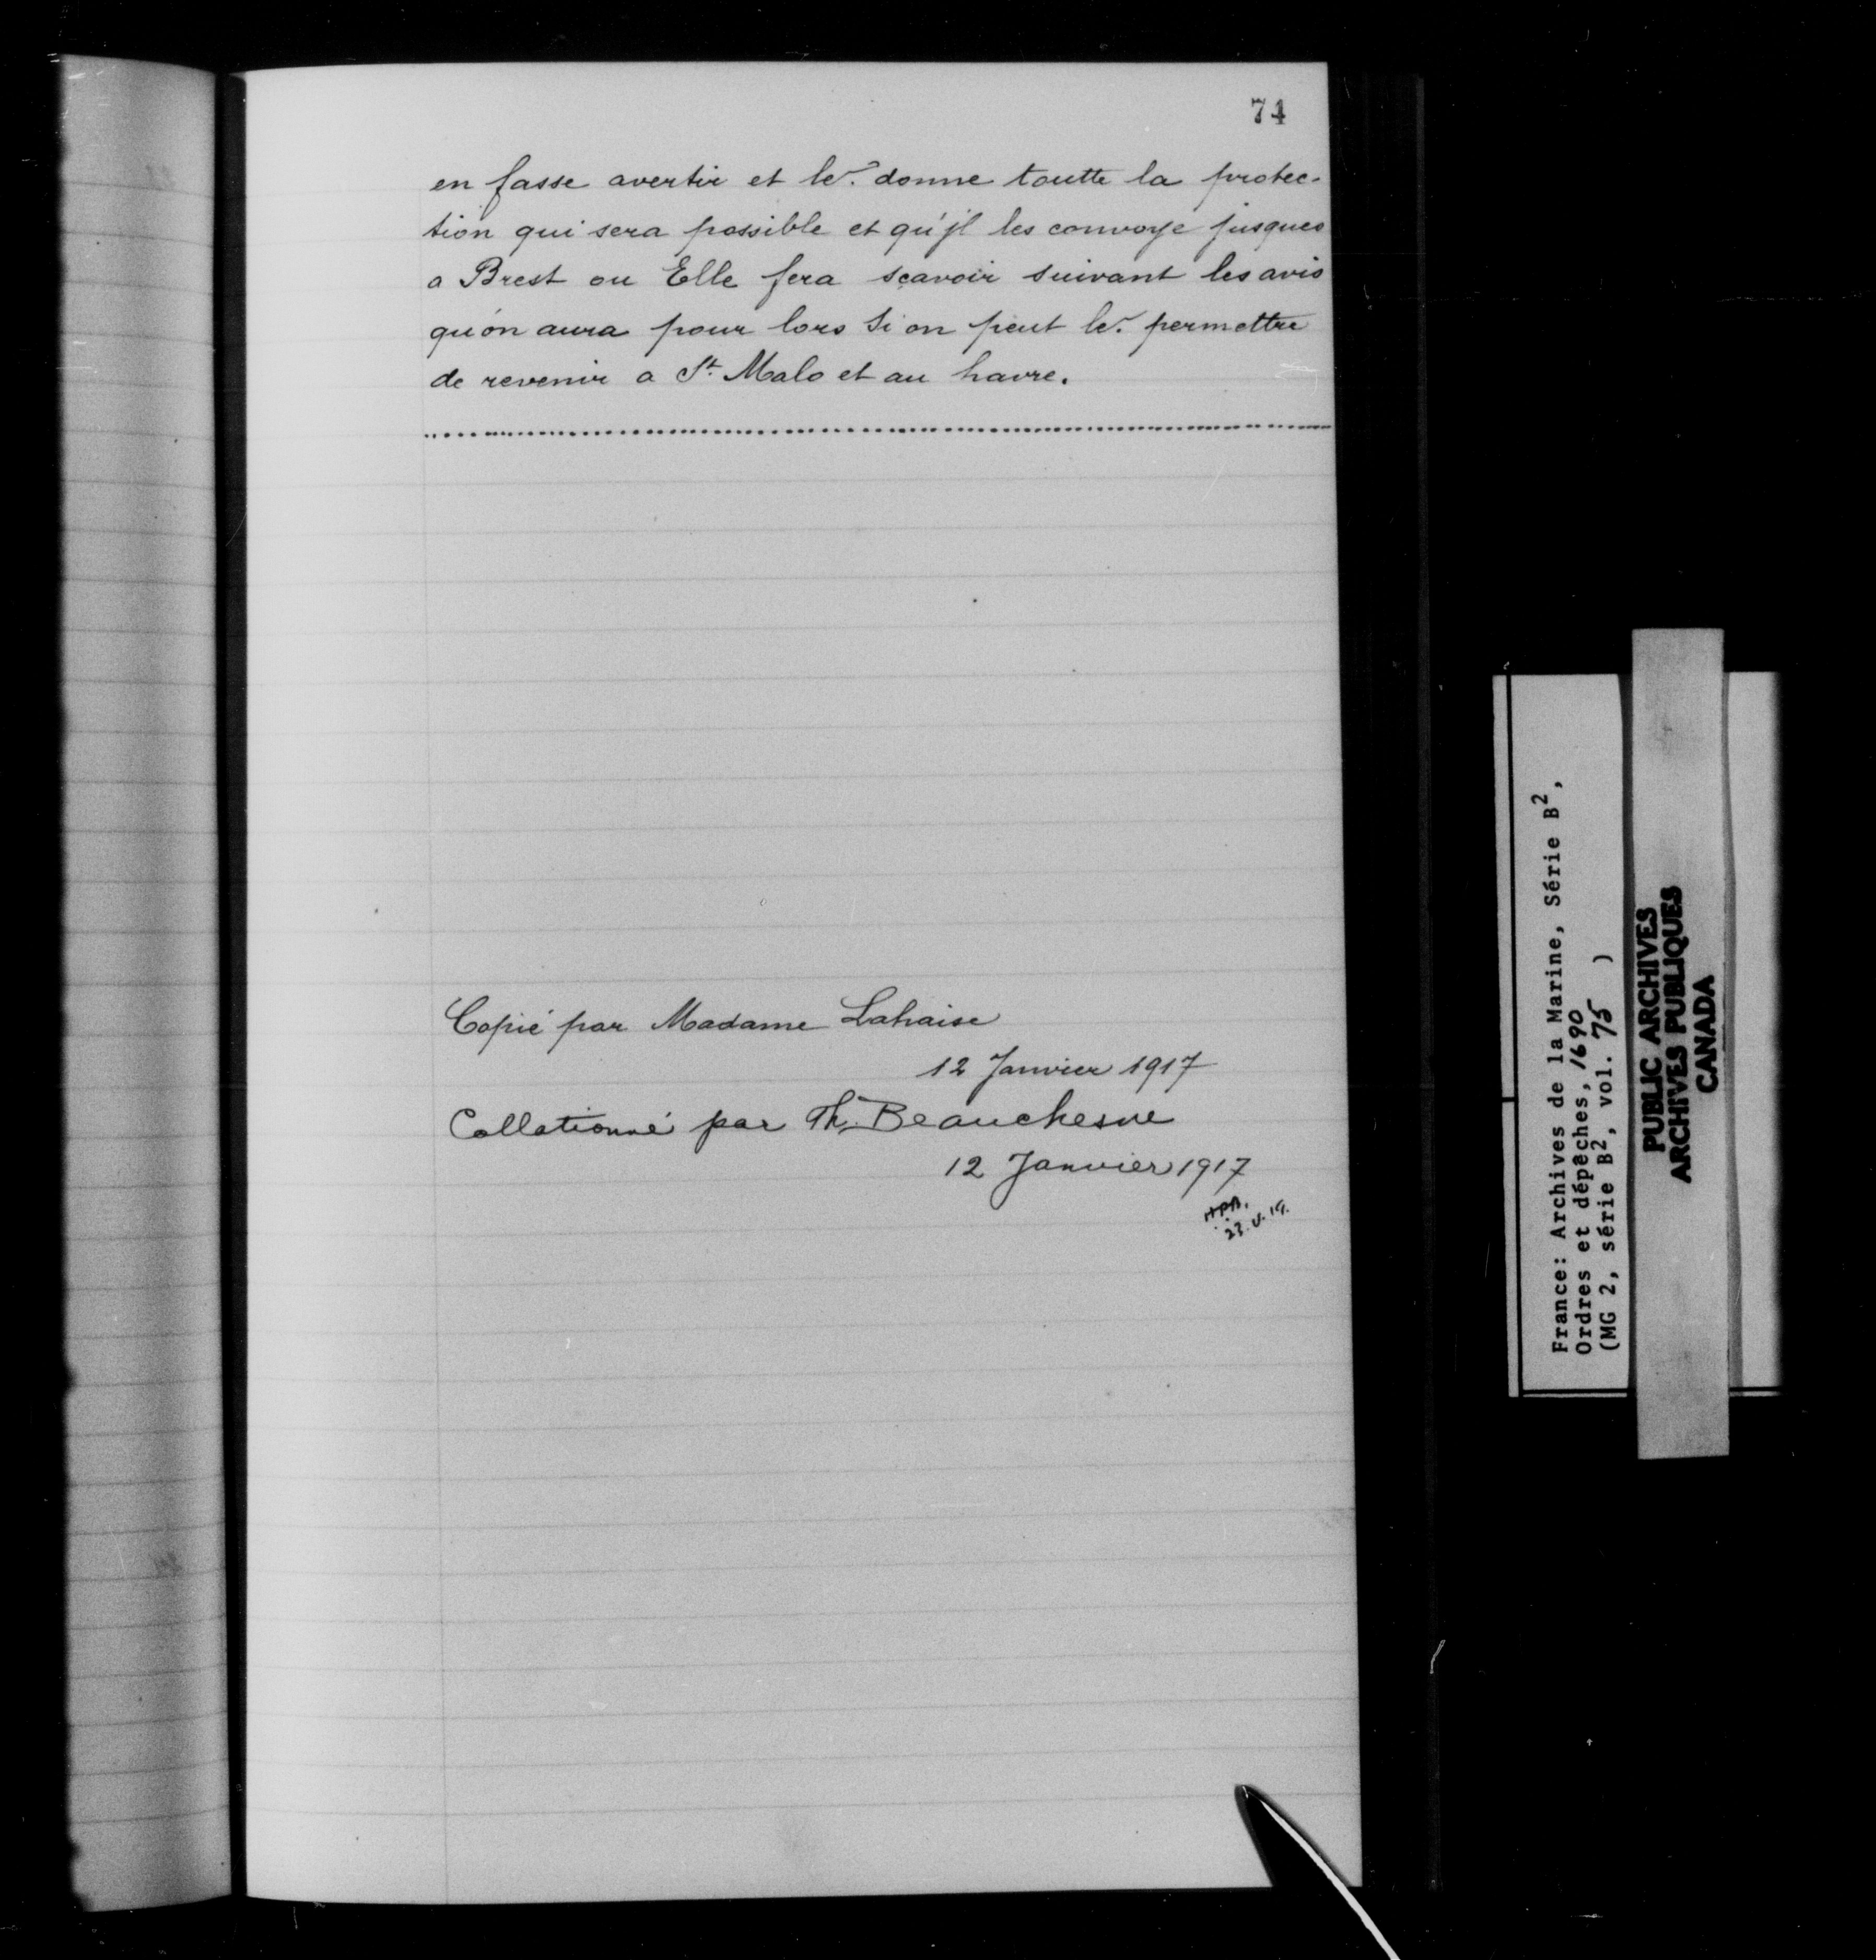 74
en fasse avertir et le.r donne toutte la protec-
tion qui sera possible et qu'jl les convoye jusques
a Brest ou Elle fera sçavoir suivant les avis
qu'on aura pour lors Si on peut le.r permettre
de revenir a St. Malo et au havre.
Copié par Madame Lahaise
12 Janvier 1917
Collationné par Th. Beauchesne
12 Janvier 1917
23.V.19.
France: Archives de la Marine, Série B2,
Ordres et dépêches, 1690
(MG 2, série B2, vol. 75 )
PUBLIC ARCHIVES
ARCHIVES PUBLIQUES
CANADA